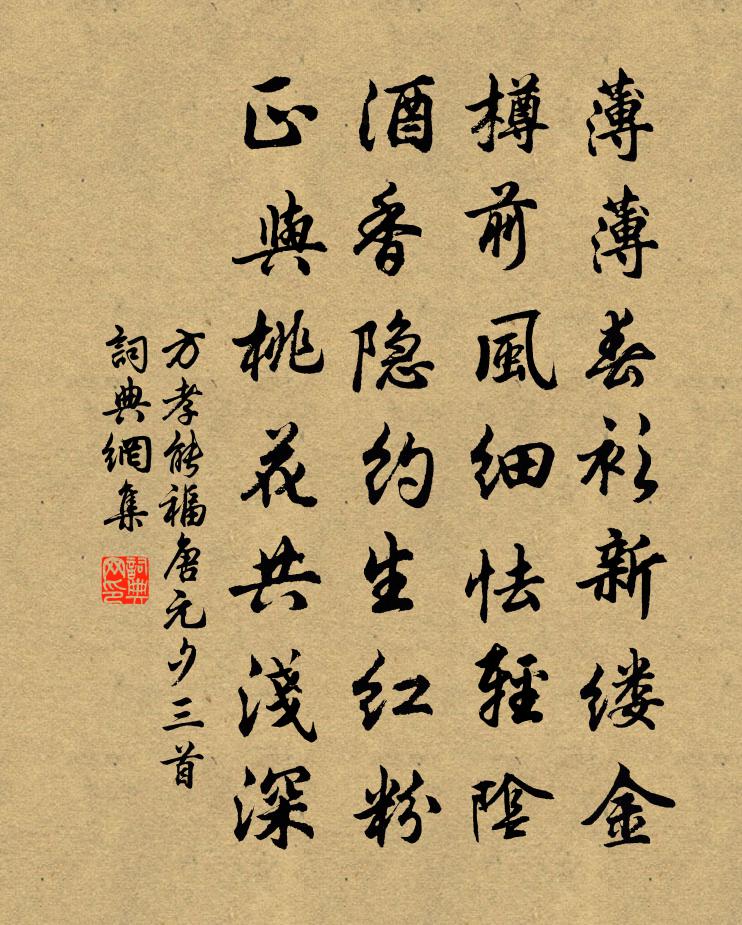 薄薄春衫新缕金
樽前風细怯輕陰
酒香隐约生红粉
正與桃花共淺深
方孝能福唐元夕三首
詞典網集
詞典網印